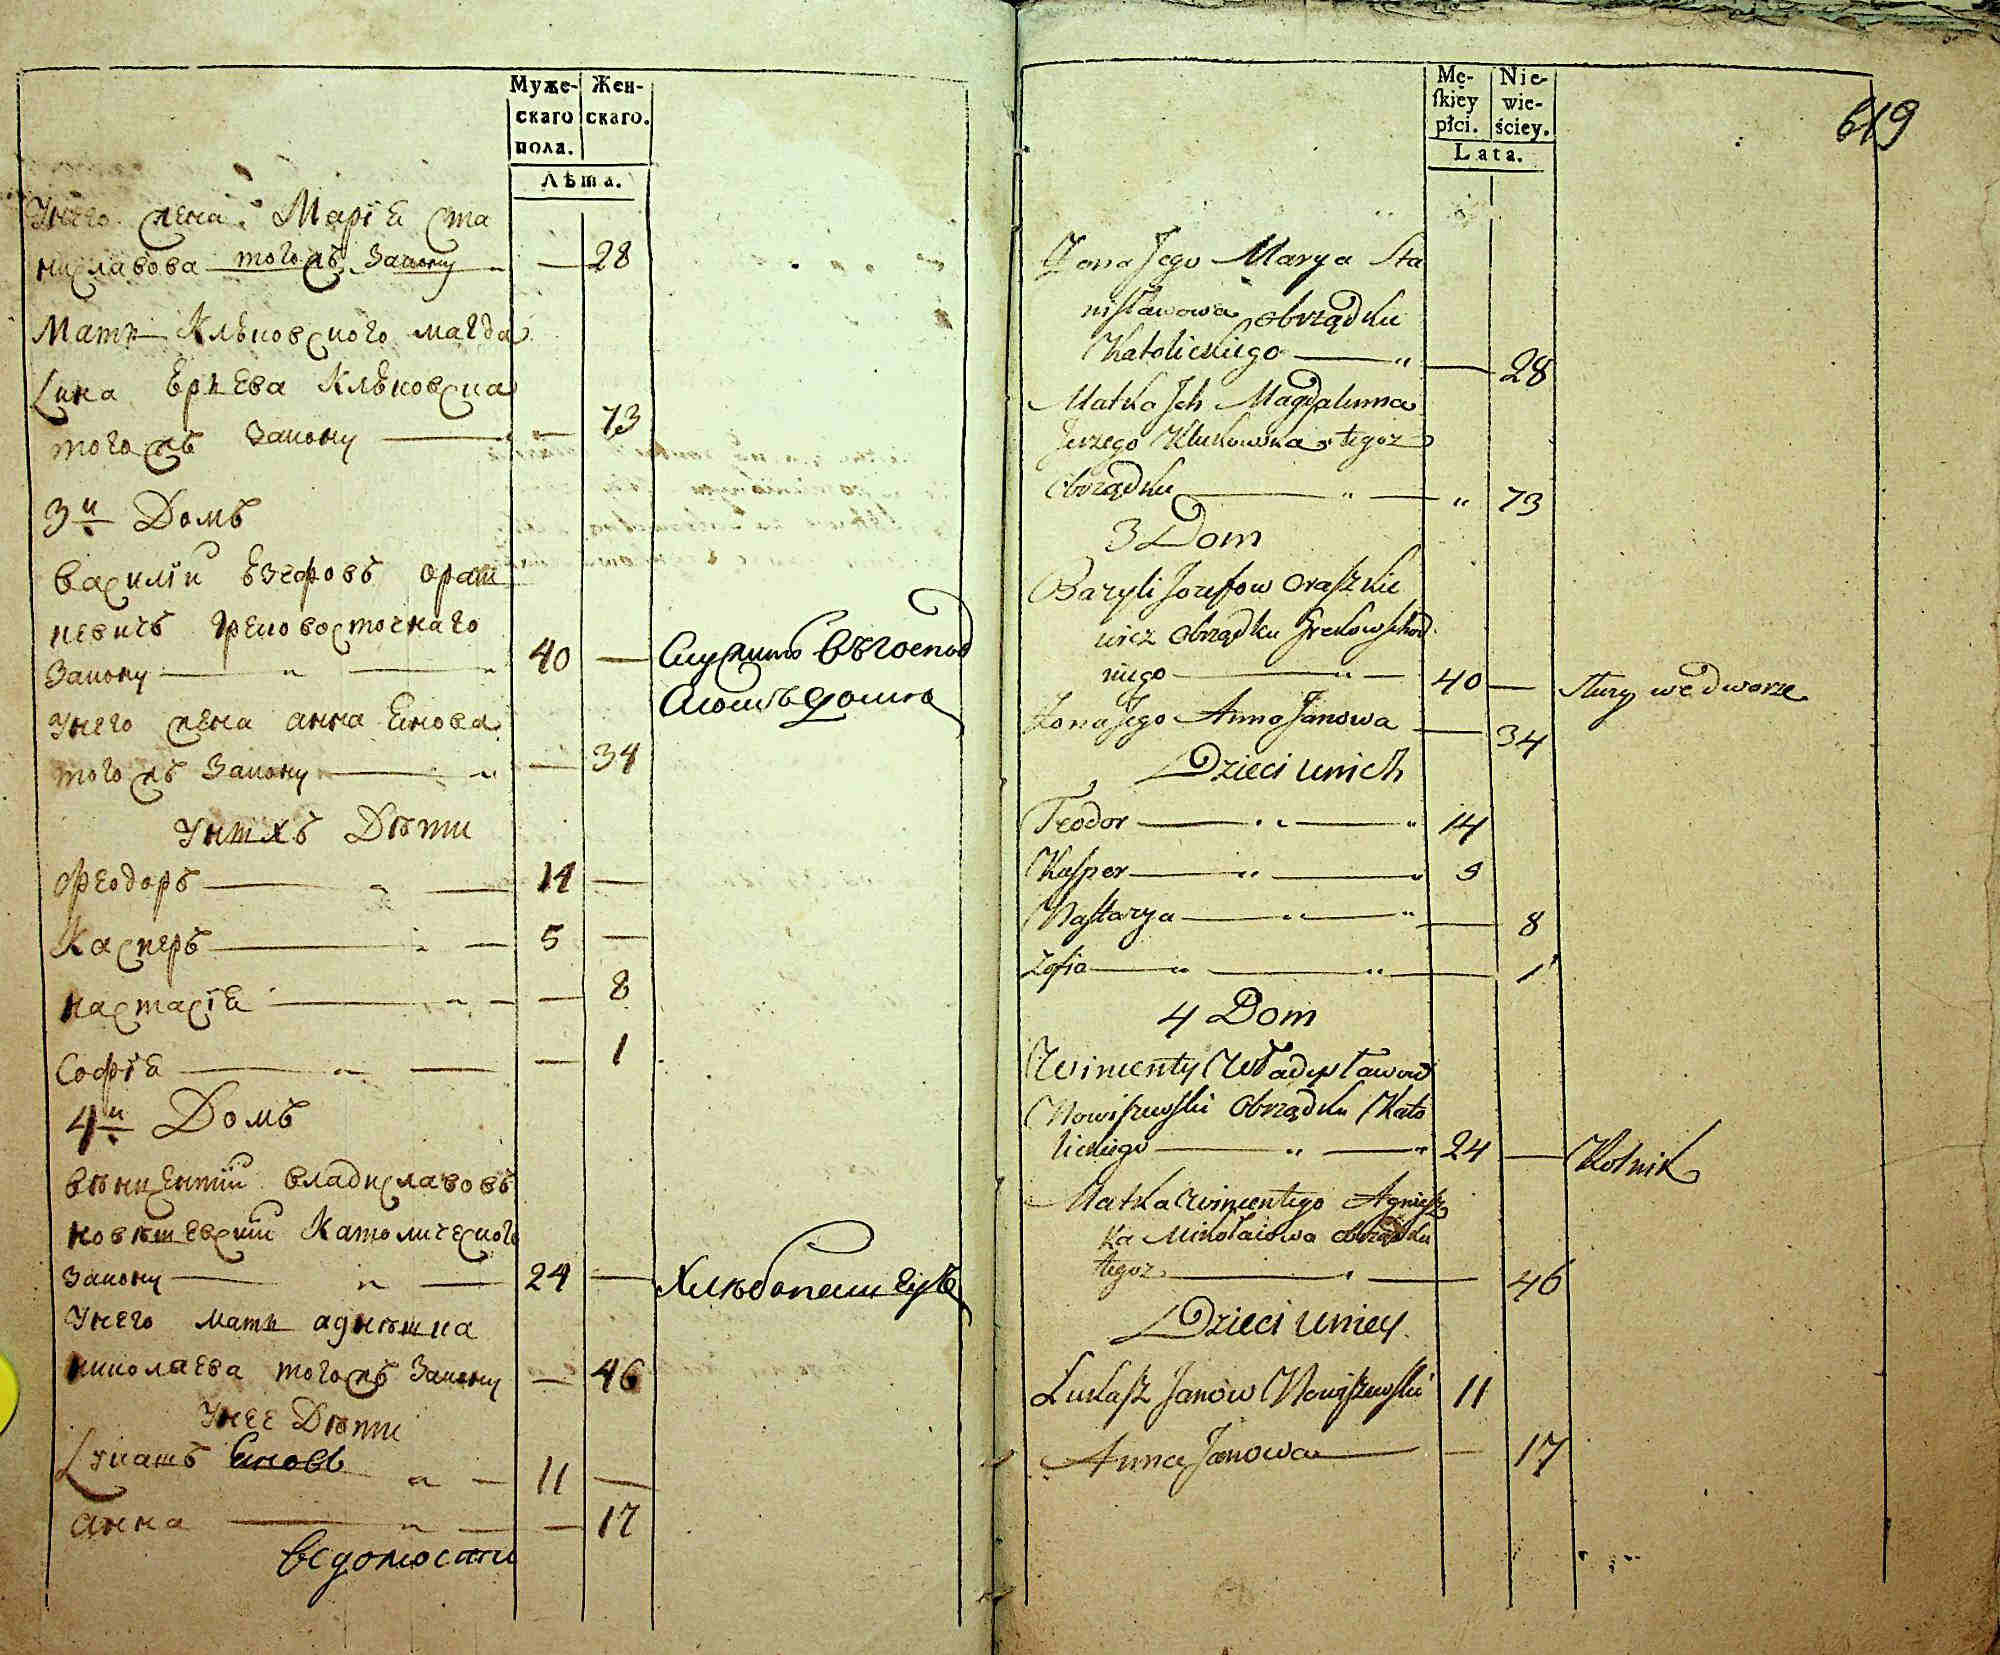 Муже-
скаго
пола.
Жен-
скаго.
Лѣта.
Унего жена Маріѣ Ста
ниславова тогожъ Закону — 28
Мать Клѣковского магда
Лена Ерьева Клѣковска
тогожъ Закону — 73
3й Домъ
Василіи Езефовъ Ораш
кевичъ Грековосточнаго
Закону 40 — Служитъ въ господ
скомъ доме
Унего жена анна Енова
тогожъ Закону — 34
Унихъ Дѣти
Феодоръ 14 —
Касперъ 5 —
Настасіѣ — 8
Софіѣ — 1
4й Домъ
Вѣнцентіи Владиславовъ
Новѣшевскии Католического
Закону 24 — Хлѣбопашецъ
Унего мать агнѣшка
николаева тогожъ Закону — 46
Унее Дѣти
Лукашъ Еновъ 11 —
анна — 17
Ведомости
Mę-
skiey
płci.
Nie-
wie-
ściey.
Lata.
619
Zona Jego Marya Sta
nisławowa obrządku
Katolickiego — 28
Matka Jch Magdalenna
Jerzego Klukowska tegoz
Obrządku 73
3 Dom
Bazyli Jozefow Oraszkie
wicz Obrządku Grekowschod
niego 40 — służy we dworze
Zona Jego Anna Janowa — 34
Dzieci unich
Teodor 14
Kasper 5
Nastazya — 8
Zofia — 1
4 Dom
Wincenty Władysławow
Nowiszewski Obrządku Kato
lickiego 24 — Rolnik
Matka Wincentego Agniesz
ka Mikołaiowa obrządku
tegoz 46
Dzieci uniey
Lukasz Janow Nowiszewski 11
Anna Janowa — 17